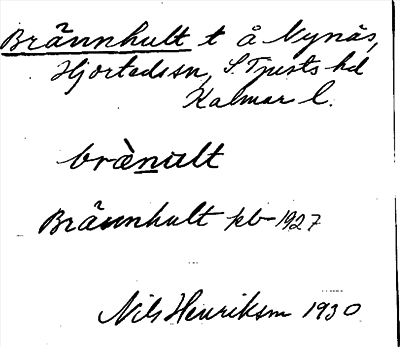 Brännhult t å Nynäs,
Hjortedssn, S. Tjusts hd
Kalmar l.
brènult
Brännhult pb 1927
Nils Henriksm 1930